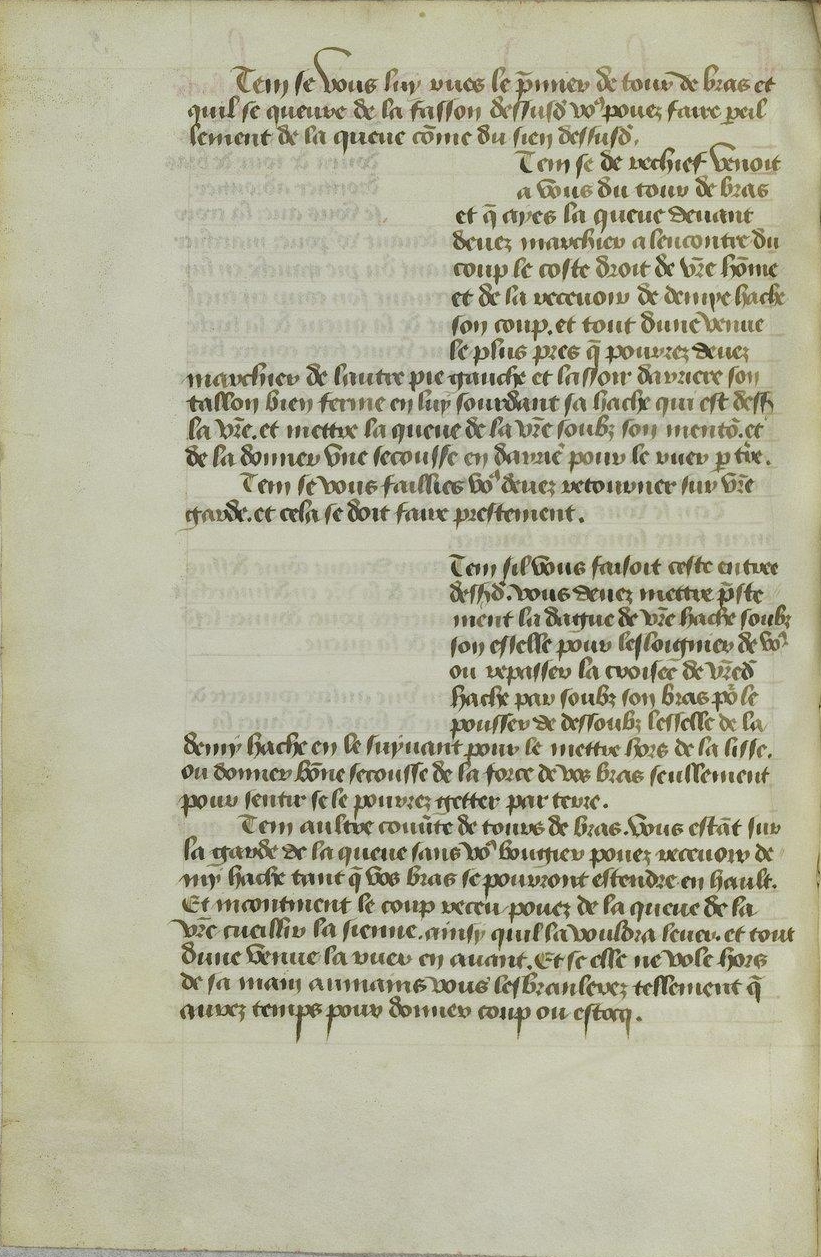 Tem se vous luy rues le p̄mier de tour de bras et
quil se queuve de la fasson dessusd̄ vo⁹ pouez faire pareil
lement de la queue cōme du sien dessusd̄.
Tem se de rechief venoit
a vous du tour de bras
et q̄ ayes la queue deuant
deuez marchier a lencontre du
coup le coste droit de vr̄e hōme
et de la receuoir de demye hache
son coup. et tout dune venue
le plus pres q̄ pourrez deuez
marchier de lautre pie gauche et lassoir darriere son
tallon bien ferme en luy sourdant sa hache qui est dess⁹
la vr̄e. et mettre la queue de la vr̄e soubz son mentō. et
de la donner vne secousse en darriē pour le ruer p tr̄e.
Tem se vous faillies vo⁹ deuez retourner sur vr̄e
garde. et cela se doit faire prestement.
Tem sil vous faisoit ceste entree
dessusd̄. vous deuez mettre p̄ste
ment la dague de vr̄e hache soubz
son esselle pour lesloignier de vo⁹
ou repasser la croisee de vr̄ed̄
hache par soubz son bras po᷑ le
pousser de dessoubz lesselle de la
demy hache en le suyuant pour le mettre hors de la lisse.
ou donner bōne secousse de la force de vos bras seullement
pour sentir se le pourrez getter par terre.
Tem aultre couūte de tours de bras. vous estāt sur
la garde de la queue sans vo⁹ bougier pouez receuoir de
my hache tant q̄ vos bras se pourront estendre en hault.
Et incontinent le coup receu pouez de la queue de la
vr̄e cueillir la sienne. ainsy quil la vouldra leuer. et tout
dune venue la ruer en auant. Et se elle ne vole hors
de sa main aumains vous lesbranlerez tellement q̄
aurez temps pour donner coup ou estocq.